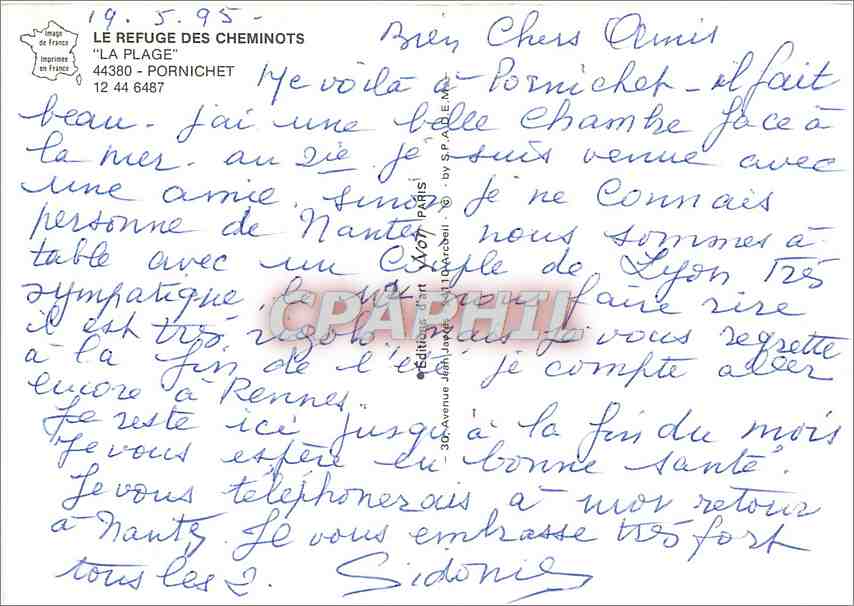 19.5.95-
Image
de France
Imprimée
en France
LE REFUGE DES CHEMINOTS
"LA PLAGE"
44380 - PORNICHET
12 44 6487
Bien Chers Amis
Me voilà à Pornichet - il fait
beau. j'ai une belle chambre face à
la mer. au 2ie je suis venue avec
une amie. sinon je ne connais
personne de Nantes nous sommes à
table avec un couple de Lyon très
sympatique. le nous faire rire
il est très rigolo, mais je vous regrette
à la fin de l'été je compte aller
encore à Rennes.
Je reste ici jusqu'à la fin du mois
Je vous espère en bonne santé.
Je vous téléphonerais à mon retour
à Nantes. Je vous embrasse très fort
tous les 2. Sidonie
Editions d'art Yvon PARIS
30, Avenue Jean Jaurès 94110 Arcueil - © - by S.P.A.D.E.M.
CPAPHIL